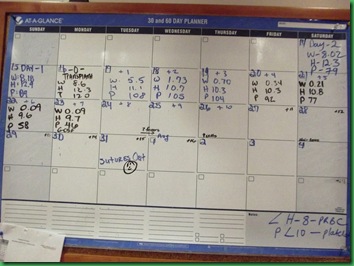 AT-A-GLANCE
30 and 60 DAY PLANNER
SUNDAY MONDAY TUESDAY WEDNESDAY THURSDAY FRIDAY SATURDAY
Day-2
W-8.02
H-12.3
P-79
15 DAY-1
H-12.4
16-0-
TRANSPLANT
W 8.6
H 12.3
T 12.0
17 +1
W 5.5
H 11.1
P 108
18 +2
W 1.73
H 10.7
P 105
19 +3
W 0.70
H 10.3
P 104
20 +4
W 0.34
H 10.3
P 92
+5
W 0.21
H 10.8
P 77
22 +6
W 0.09
H 9.6
P 58
23 +7
W 0.09
H 9.7
P 46
24 +8
25 +9
26 +10
27 +11
28 +12
29
30 +14
31 +15
sutures Out
2
3
4
Notes
< H-8-PRBC
P<10-